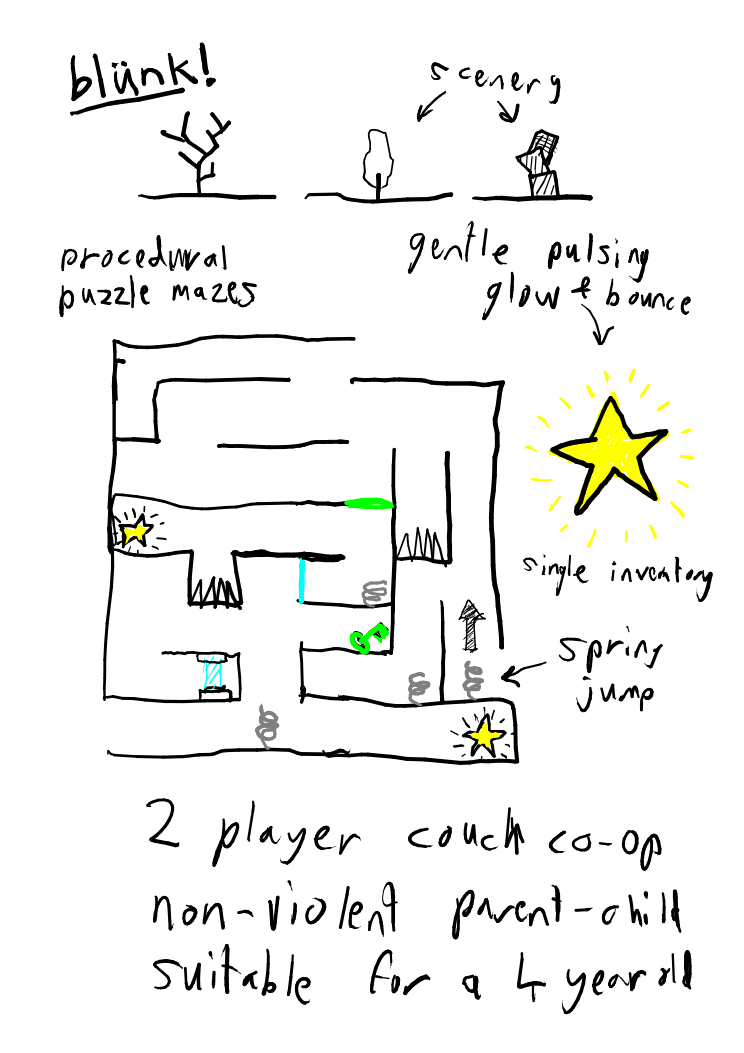 blünk!
scenery
procedural
puzzle mazes
gentle pulsing
glow & bounce
single inventory
spring
jump
2 player couch co-op
non-violent parent-child
suitable for a 4 year old